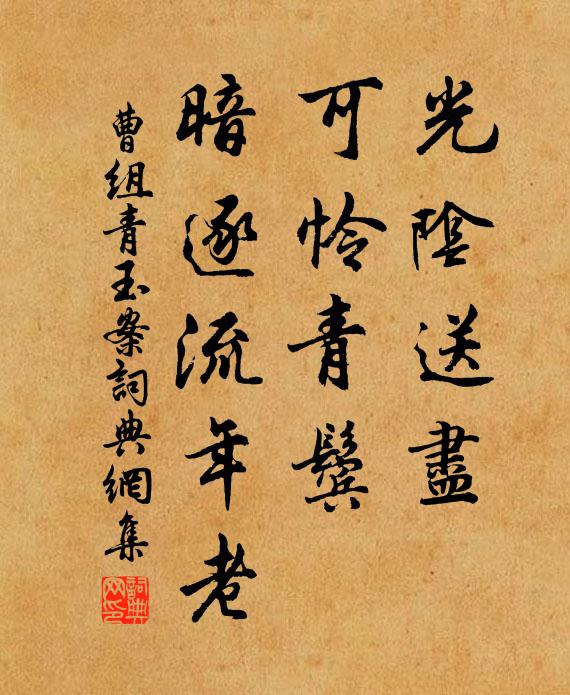 光陰送盡
可怜青鬢
暗逐流年老
曹组青玉案詞典網集
詞典
网印